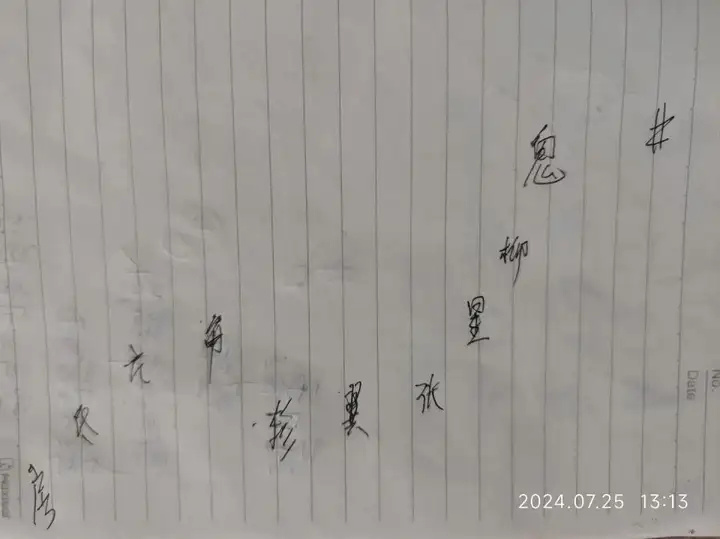 井
鬼
柳
星
张
翼
轸
角
亢
氐
房
No.
Date
2024.07.25 13:13